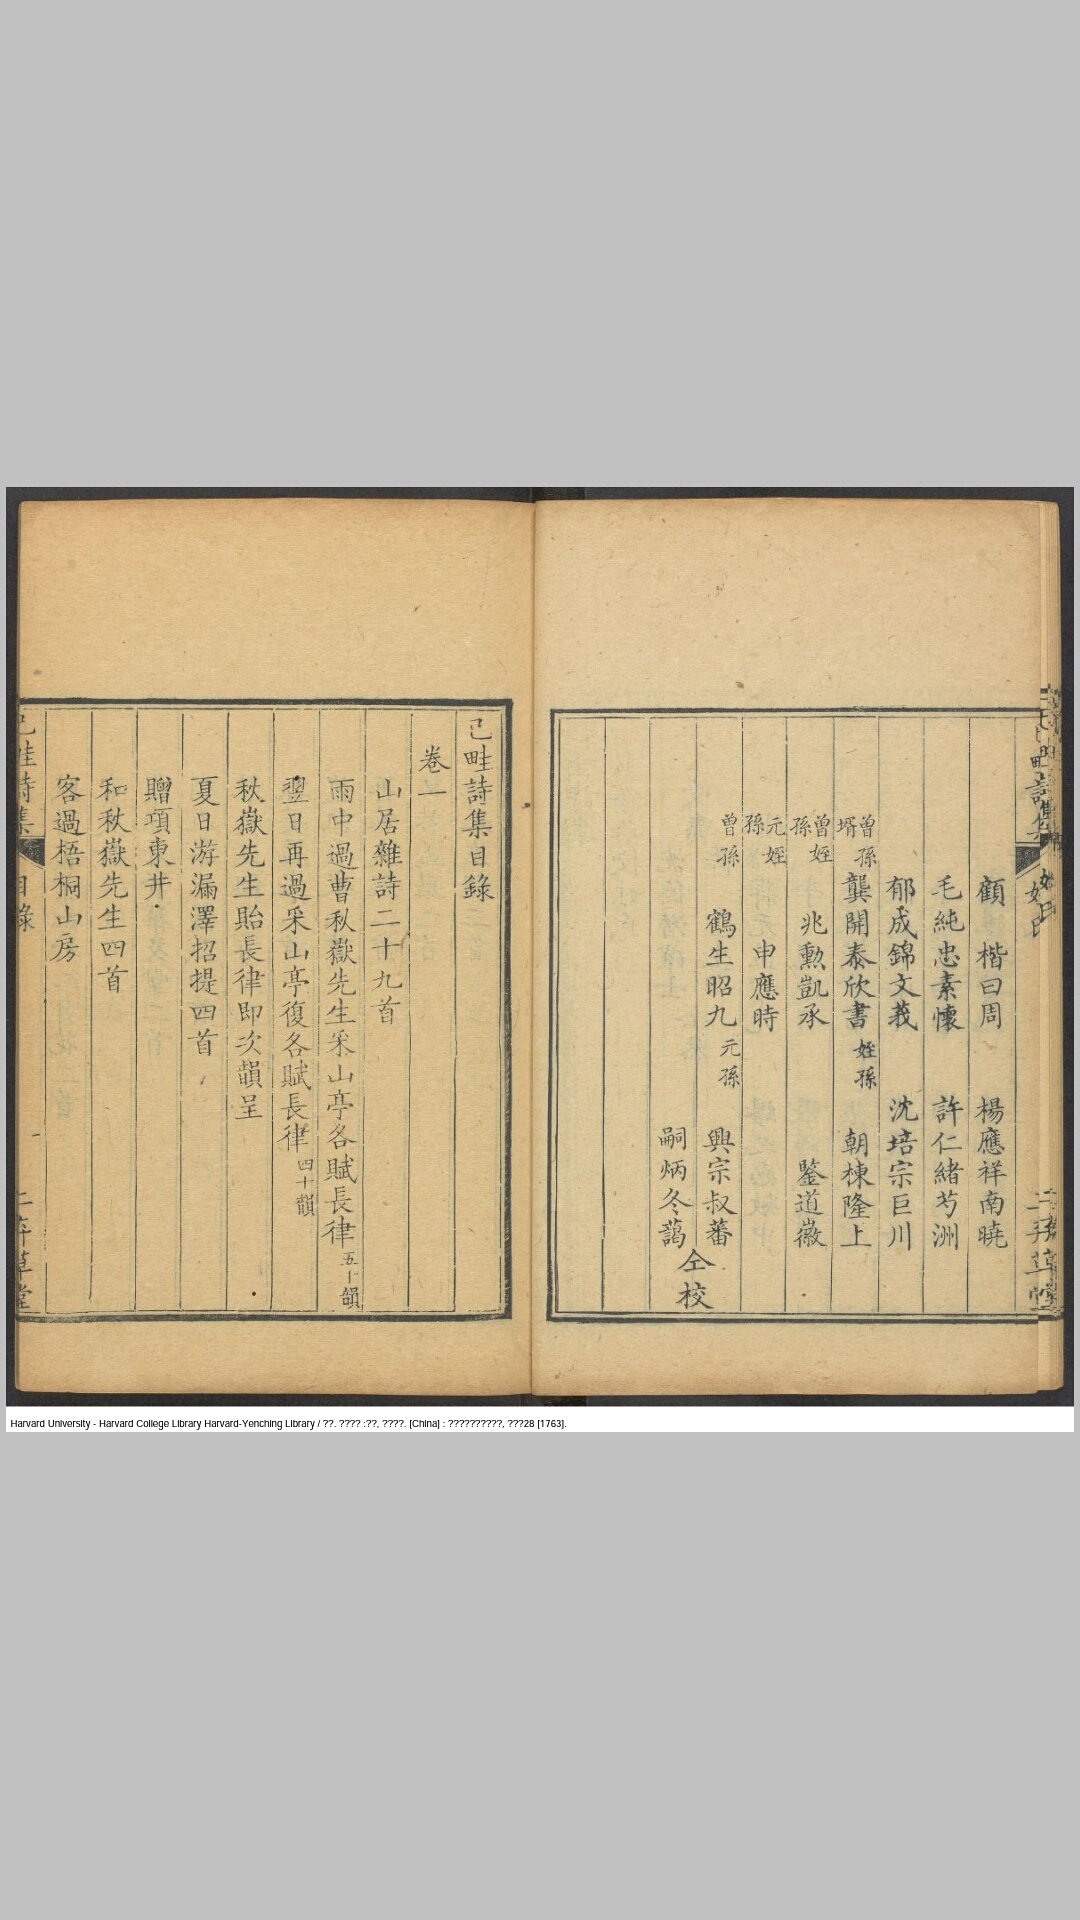 顧　楷曰周　楊應祥南曉
毛純忠素懷　許仁緒芍洲
郁成錦文義　沈培宗巨川
曾孫壻龔開泰欣書　姪孫朝棟隆上
曾姪孫兆勲凱承　鑒道徽
元姪孫申應時
曾孫鶴生昭九　元孫興宗叔蕃
嗣炳冬藹
仝校
已畦詩集目錄
卷一
山居雜詩二十九首
雨中過曹秋嶽先生采山亭各賦長律五十韻
翌日再過采山亭復各賦長律四十韻
秋嶽先生貽長律即次韻呈
夏日游漏澤招提四首
贈項東井
和秋嶽先生四首
客過梧桐山房
已畦詩集　目錄　一　二弃草堂
Harvard University - Harvard College Library Harvard-Yenching Library / ??. ???? :??, ????. [China] : ??????????, ???28 [1763].